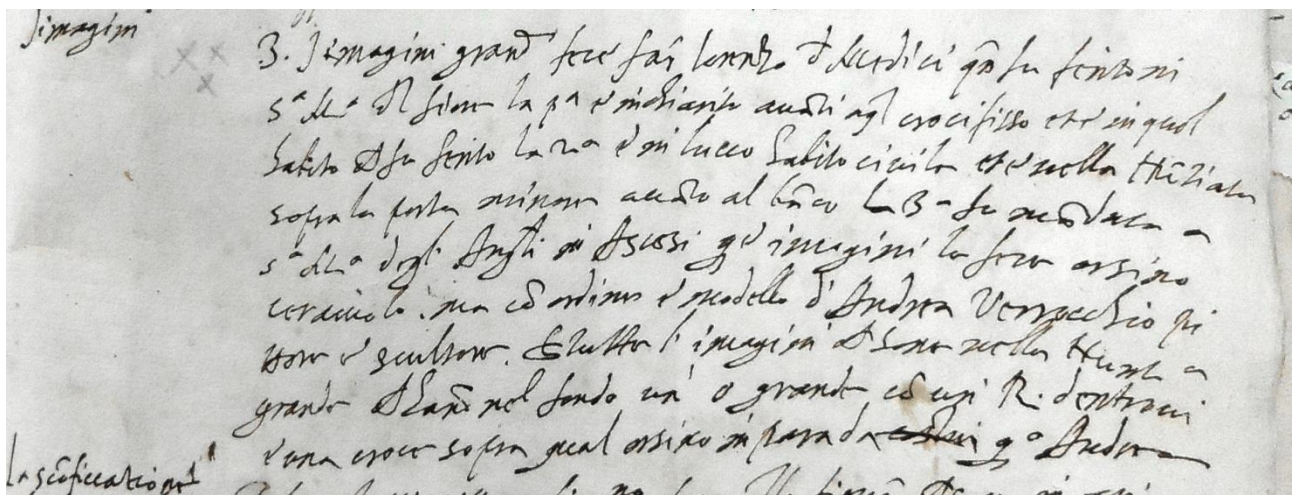 Jimagini
3. Jimagini grand fece far lorenzo d medici qn fu ferito ni
sª Mª dl fiore la pª è inchiarito auāti aql crocifisso et è in quel
habito ch fu ferito la 2ª è in lucco habito ciuile et è nella Nūtiata
sopra la porta minore acāto al bāco la 3ª fu mādata a
sª Mª degl Angli in Ascesi qe imagini la fece orsino
ceraiuolo. ma cō ordine è modello d Andrea Verrocchio pi
ttore è scultore. Etutte l imagini ch sono nella Nunt a
grande ch hanō nel fondo un o grande cō un R. dentroui
è una croce sopra qual orsino inpara da qº Andrea
La scoficcatione